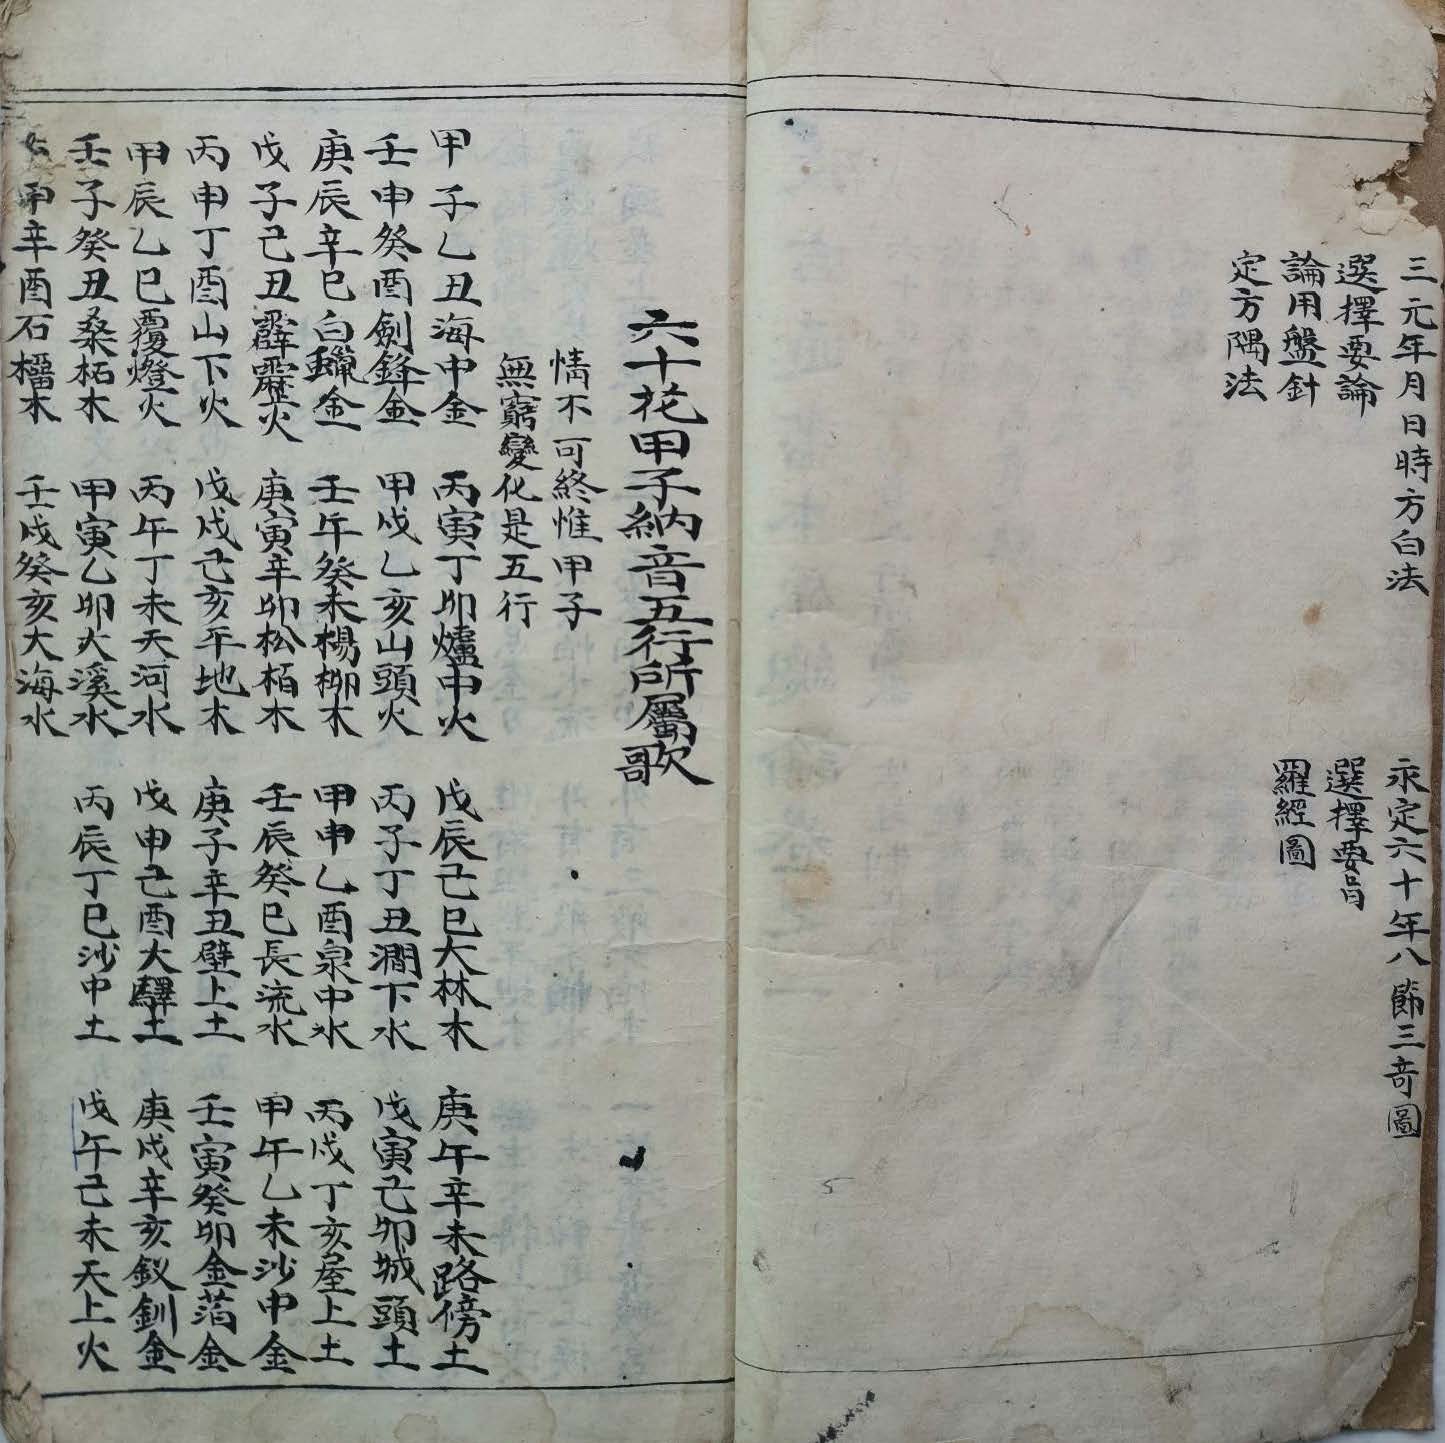 三元年月日時方白法 永定六十年八節三奇圖
選擇要論 選擇要旨
論用盤針 羅經圖
定方隅法
六十花甲子納音五行所屬歌
情不可終惟甲子
無窮變化是五行
甲子乙丑海中金 丙寅丁卯爐中火 戊辰己巳大林木 庚午辛未路傍土
壬申癸酉劍鋒金 甲戌乙亥山頭火 丙子丁丑澗下水 戊寅己卯城頭土
庚辰辛巳白鑞金 壬午癸未楊柳木 甲申乙酉泉中水 丙戌丁亥屋上土
戊子己丑霹靂火 庚寅辛卯松栢木 壬辰癸巳長流水 甲午乙未沙中金
丙申丁酉山下火 戊戌己亥平地木 庚子辛丑壁上土 壬寅癸卯金箔金
甲辰乙巳覆燈火 丙午丁未天河水 戊申己酉大驛土 庚戌辛亥釵釧金
壬子癸丑桑柘木 甲寅乙卯大溪水 丙辰丁巳沙中土 戊午己未天上火
申辛酉石榴木 壬戌癸亥大海水